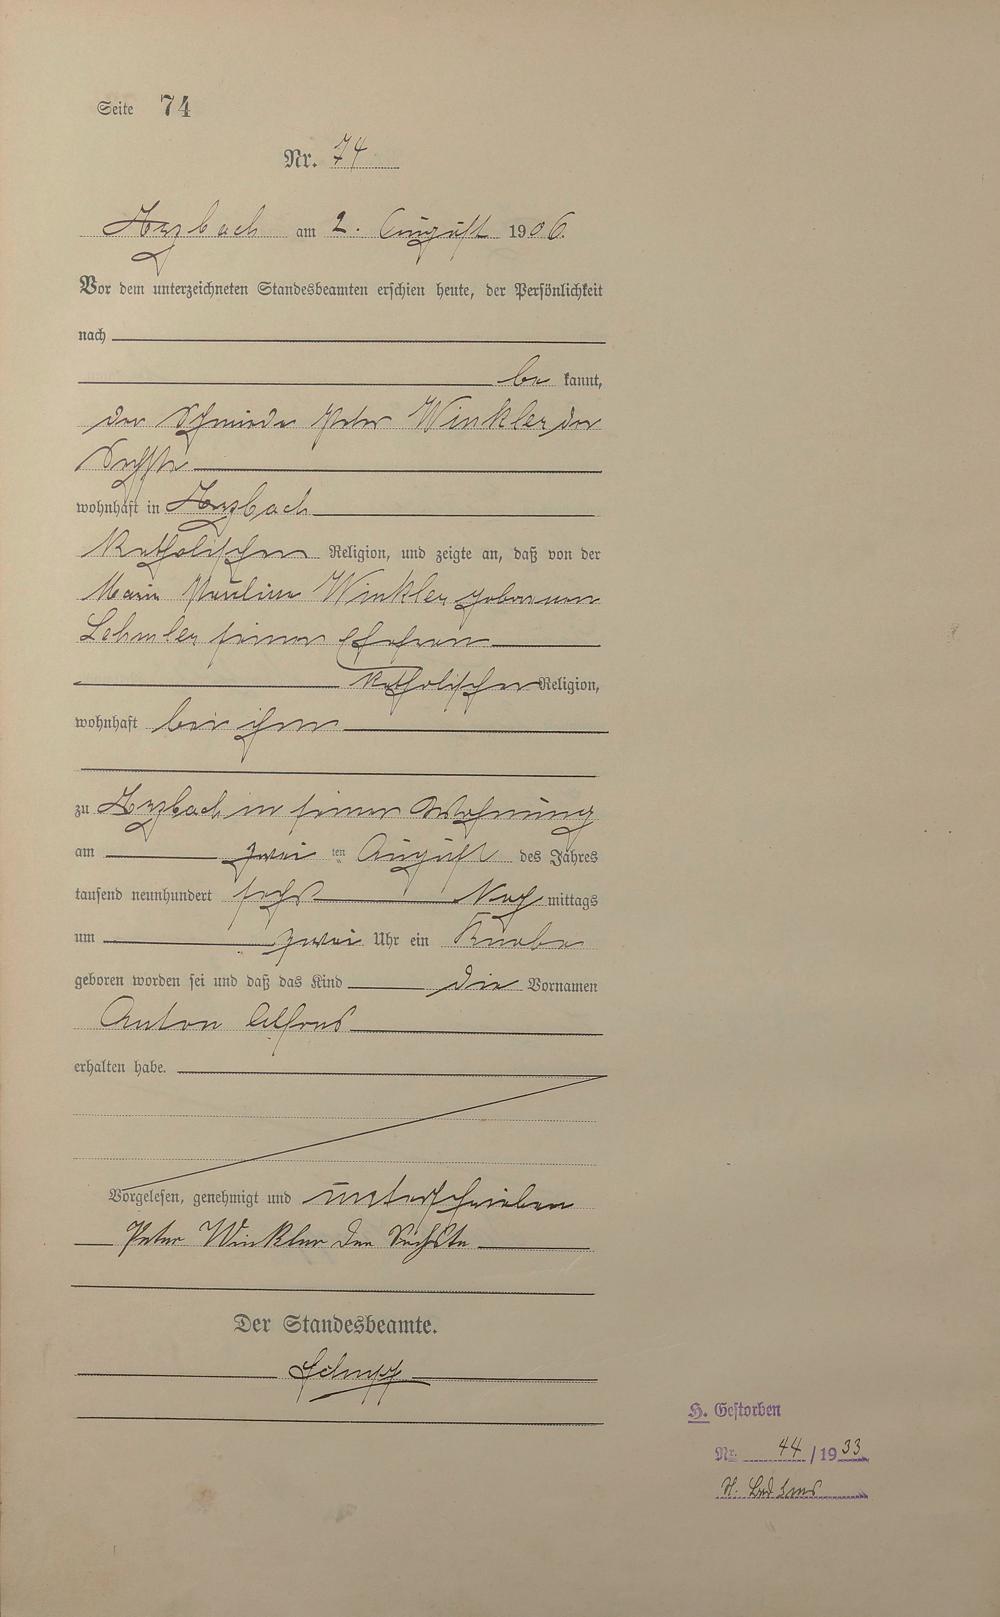 Seite 74
Nr. 74
am 2. August 1906.
Vor dem unterzeichneten Standesbeamten erschien heute, der Persönlichkeit
nach
be kannt,
der Schmiede Peter Winkler der
Sechste
wohnhaft in
Katholischen Religion, und zeigte an, daß von der
Marie Pauline Winkler geborenen
Lehmler seiner Ehefrau
Katholischen Religion,
wohnhaft bei ihm
zu in seiner Wohnung
am zwei ten August des Jahres
tausend neunhundert sechs Nach mittags
um zwei Uhr ein Knabe
geboren worden sei und daß das Kind die Vornamen
Anton Alfons
erhalten habe.
Vorgelesen, genehmigt und unterschrieben
Peter Winkler der Sechste
Der Standesbeamte.
H. Gestorben
Nr. 44 / 1933